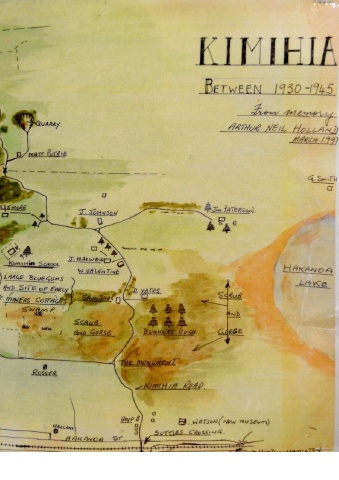 KIMIHIA
BETWEEN 1930-1945
From memory
ARTHUR NEIL HOLLAND
MARCH 199
QUARRY
MATT PURDIE
G. SMITH
J. JOHNSON
JIM PATERSON
KIMIHIA SCHOOL
W. VALENTINE
HAKANOA
LAKE
LARGE BLUEGUMS
AND SITE OF EARLY
MINERS COTTAGES
D. YATES
SWAMP
SCRUB
AND GORSE
SCRUB
AND
GORSE
THE MONUMENT
ROSSER
KIMIHIA ROAD
WATSON (NEW MUSEUM)
HAKANOA ST.
SUTTIES CROSSING